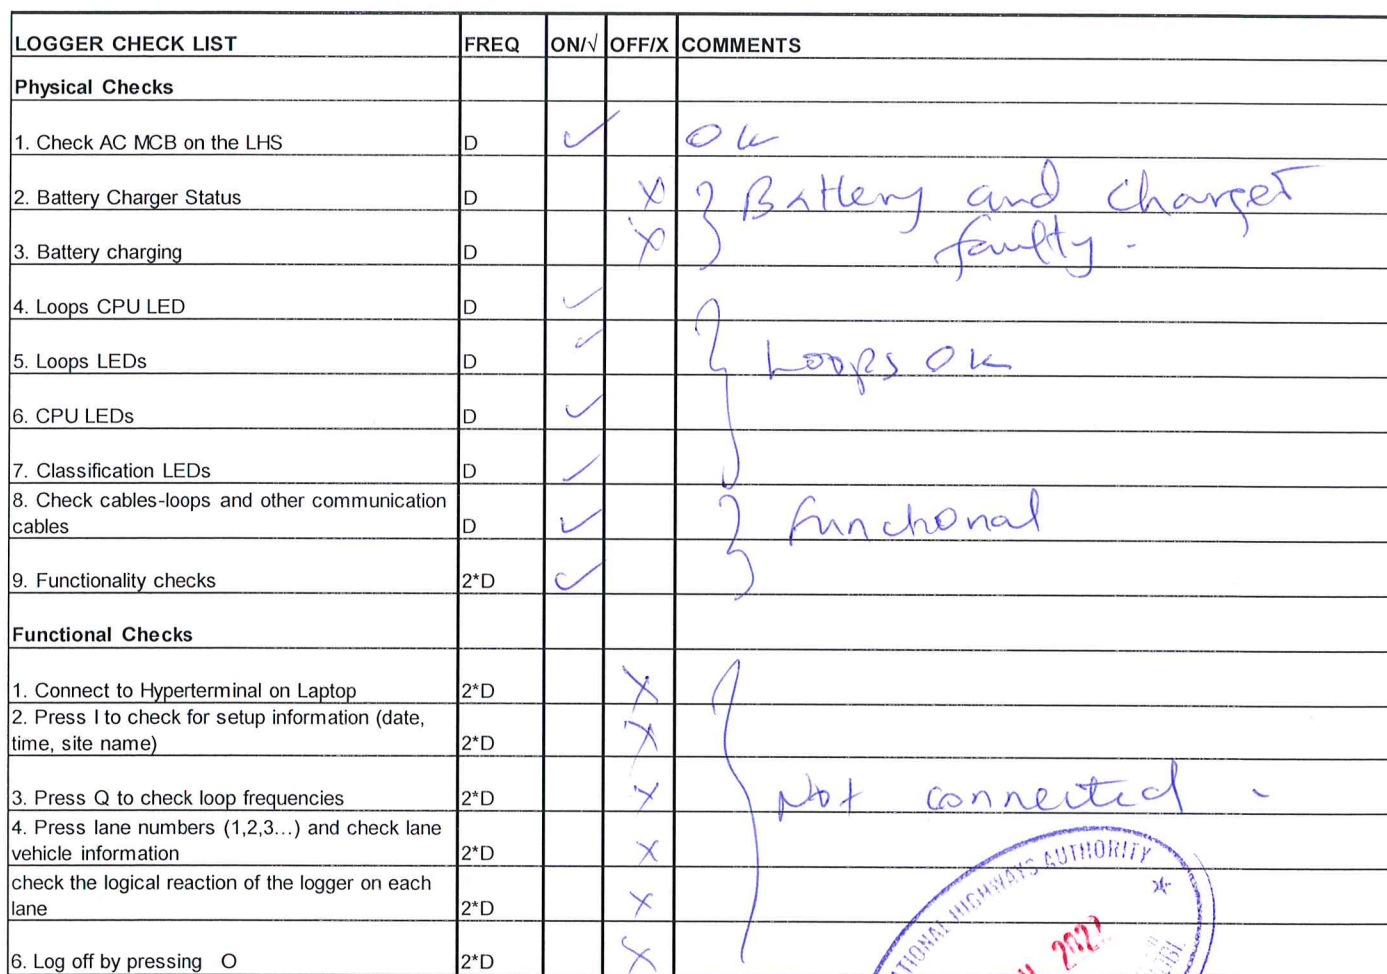 LOGGER CHECK LIST FREQ ON/√ OFF/X COMMENTS
Physical Checks
1. Check AC MCB on the LHS D ✓ OK
2. Battery Charger Status D X Battery and charger
3. Battery charging D X faulty.
4. Loops CPU LED D ✓
5. Loops LEDs D ✓ Loops OK
6. CPU LEDs D ✓
7. Classification LEDs D ✓
8. Check cables-loops and other communication
cables D ✓ functional
9. Functionality checks 2*D ✓
Functional Checks
1. Connect to Hyperterminal on Laptop 2*D X
2. Press I to check for setup information (date,
time, site name) 2*D X
3. Press Q to check loop frequencies 2*D X Not connected -
4. Press lane numbers (1,2,3...) and check lane
vehicle information 2*D X
check the logical reaction of the logger on each
lane 2*D X
6. Log off by pressing O 2*D X
HIGHWAYS AUTHORITY
2022